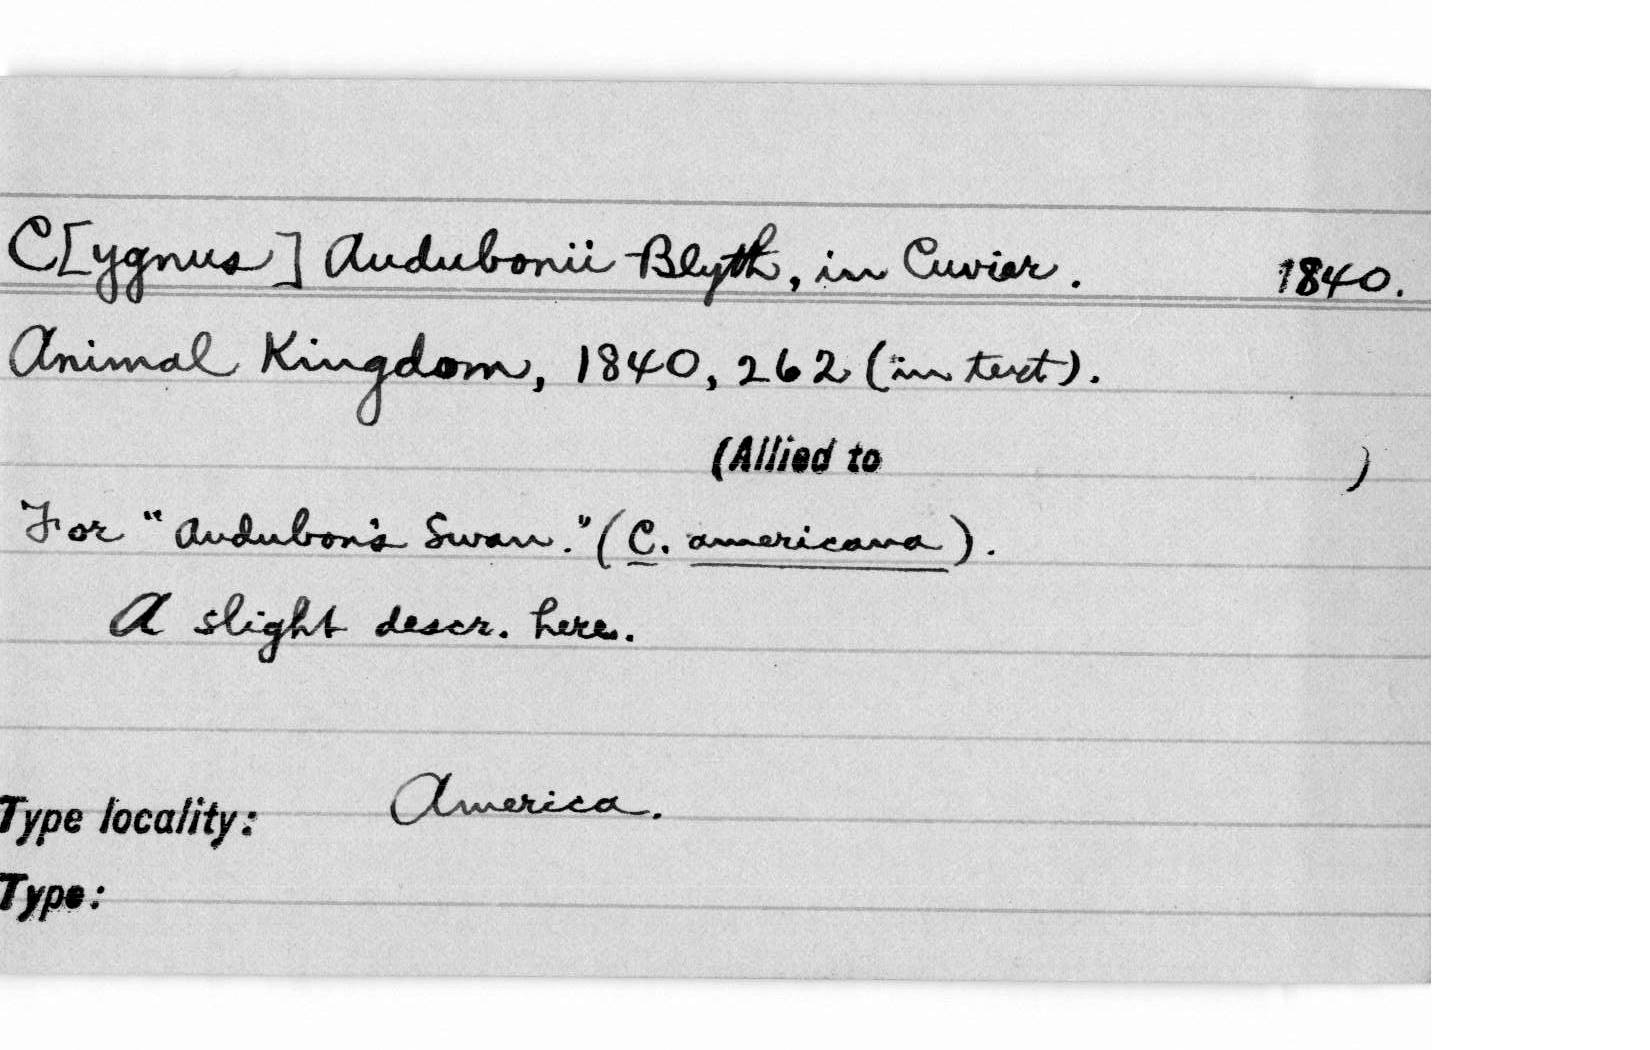 C[ygnus] Audubonii Blyth, in Cuvier. 1840.
Animal Kingdom, 1840, 262 (in text).
(Allied to )
For "Audubon's Swan." (C. americana).
A slight descr. here.
Type locality: America.
Type: